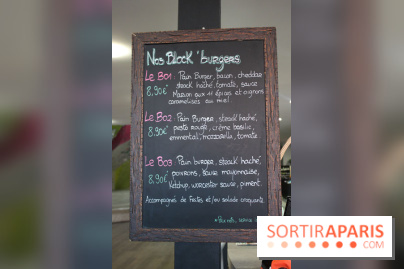 Nos BLock' burgers
Le B01 : Pain Burger, bacon, cheddar
8.90€ steack haché, tomate, sauce
Maison aux 11 épices et oignons
caramelisés au miel.
Le B02 : Pain Burger, steack haché,
8.90€ pesto rouge, crème basilic,
emmental, mozzarella, tomate.
Le B03 : Pain burger, steack haché,
8.90€ poivrons, sauce mayonnaise,
Ketchup, worcester sauce, piment.
Accompagnés de frites et/ou salade croquante.
SORTIRAPARIS
.COM